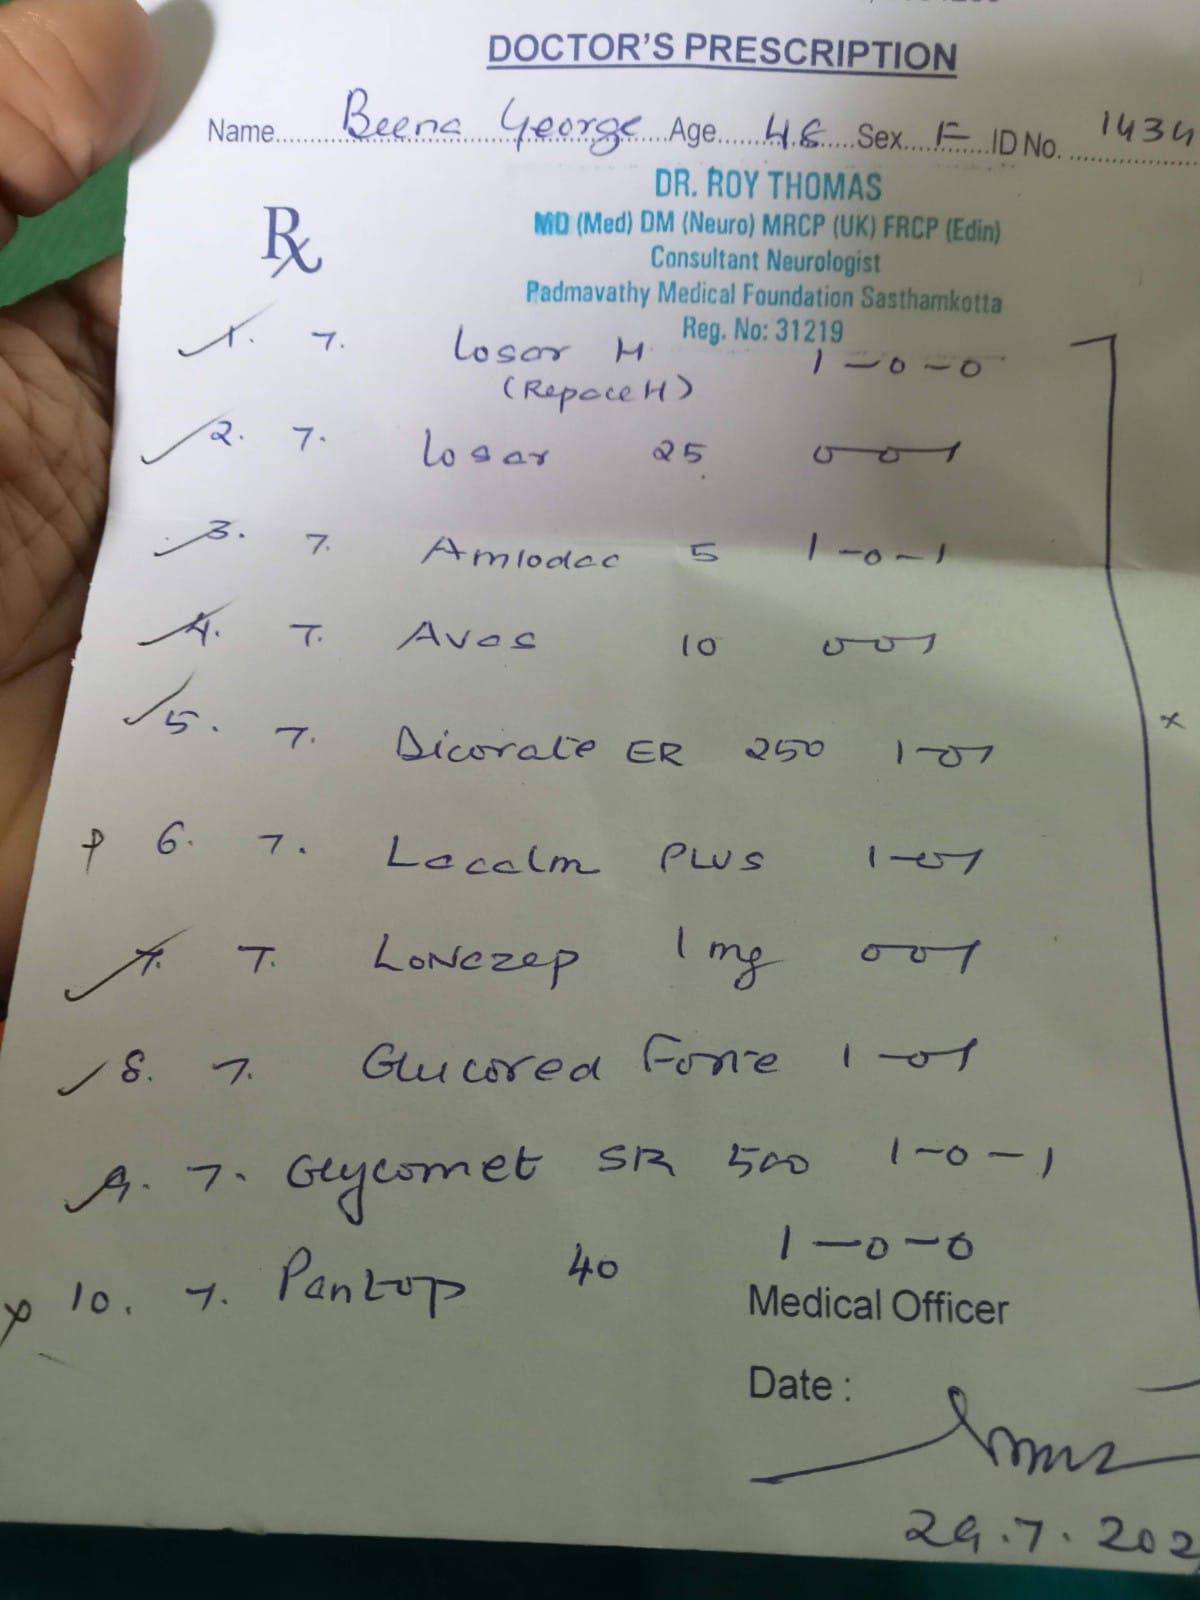 DOCTOR'S PRESCRIPTION
Name Beena George Age 48 Sex F ID No. 1434
DR. ROY THOMAS
MD (Med) DM (Neuro) MRCP (UK) FRCP (Edin)
Consultant Neurologist
Padmavathy Medical Foundation Sasthamkotta
Reg. No: 31219
Rx
1. T. Losar H 1-0-0
(Repace H)
2. T. Losar 25 0-0-1
3. T. Amlodac 5 1-0-1
4. T. Avas 10 0-0-1
5. T. Dicorate ER 250 1-0-1
6. T. Lacalm PLUS 1-0-1
7. T. LONAZEP 1 mg 0-0-1
8. T. Glucored Forte 1-0-1
9. T. Glycomet SR 500 1-0-1
10. T. Pantop 40 1-0-0
Medical Officer
Date :
29.7.202